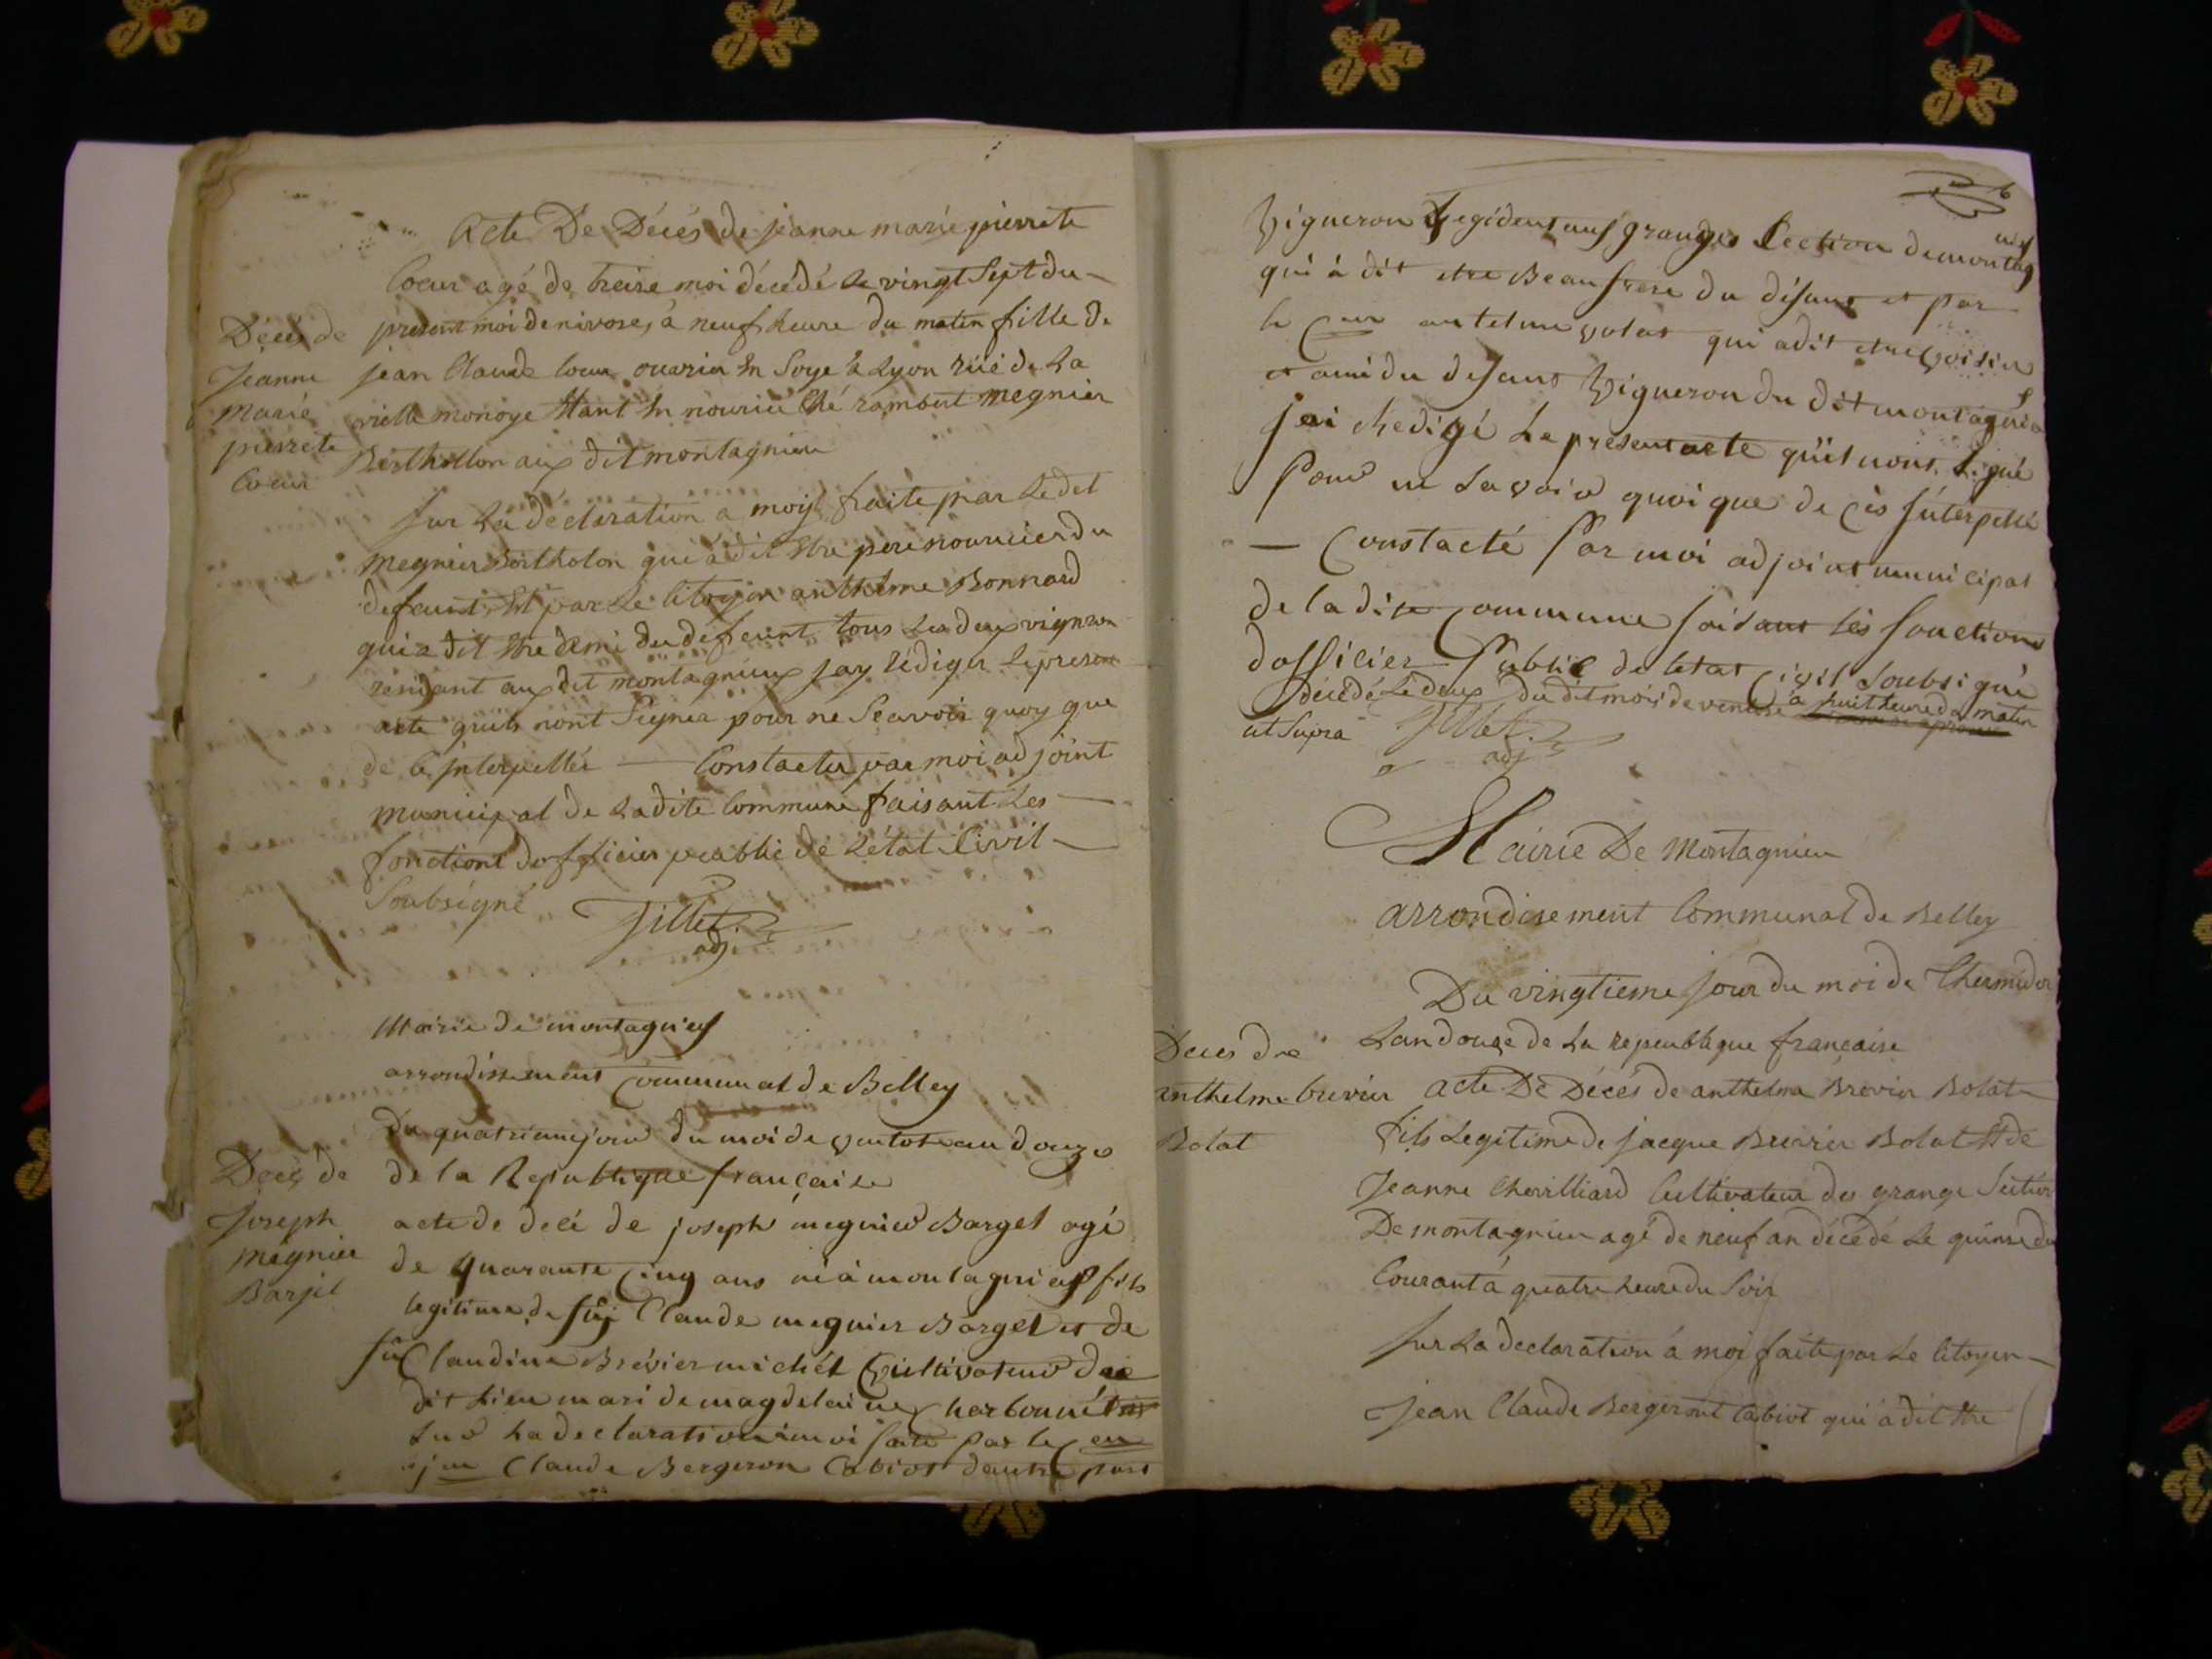 Acte De Décés de jeanne marie pierrete
Coeur agé de treize moi décédé le vingt Sept du
Décés de
Jeanne
marie
pierrete
Coeur
présent moi de nivose, à neuf heure du matin fille de
jean Claude Coeur ouvrier En Soye à Lyon rüe de La
vielle monoye Etant En nourice Ché rambert megnier
Bertholon aux dit montagnieu
Sur La déclaration a moy faite par Ledit
megnier Bertholon qui à dit Etre pere nourricier du
defeunt, Et par Le Citoyen anthelme Bonnard
qui a dit Etre ami du defeunt tous Les deux vigneron
rendant aux dit montagnieux jay Rédiger Le present
acte quils nont Signér pour ne Scavoir quoy que
de Ce jnterpellér — Constacter par moi adjoint
municipal de Ladite Commune faisant Les
fonctions dofficier public de Létat Civil
Soubsigné
Jillet
adj.
Mairie de montagnieu
arrondissement Communal de Belley
du quatriemejour du moi de ventose an douze
Decé de
Joseph
megnier
Barjet
de la Republique française
acte de decé de joseph megnier Barget agé
de quarante Cinq ans né à montagnieu fils
legitime de fû Claude megnier Barget et de
fû Claudine Brévier michél Cultivateur du
dit Lieu mari de magdelaine Charbonné
Sur La declaration à moi faite par le Cen
jean Claude Bergeron Cabiot dautre part
Vigneron Residant aux granges Section de montag
nieu
qui à dit etre Beaufrere du défunt et par
le Cen antelme volat qui adit etre voisin
et ami du defunt Vigneron du dit montagnieu
jai Redigé Le present acte qu'il nont Signé
Pour ne Savoir quoi que de Cès Interpellé
— Constacté Par moi adjoint municipal
de la dite Commune faisant les fonctions
dofficier Public de letat Civil Soubsigné
décédé Le deux du dit mois de ventose à huit heure du matin
ut Supra Jillet
adj
Mairie De Montagnieu
arrondisement Communal de Belley
Du vingtieme jour du moi de Thermidor
Lan douze de La republique francaise
Deces de
anthelme brevier
Bolat
acte De Décés de anthelme Brevier Bolat
fils Legitime de jacque Brevier Bolat Et de
Jeanne Chevilliard Cultivateur des grange Section
De montagnieu agé de neuf an décédé Le quinse du
Courant à quatre heure du Soir
Sur La declaration à moi faite par Le Citoyen
Jean Claude Bergeront Cabiot qui à dit Etre